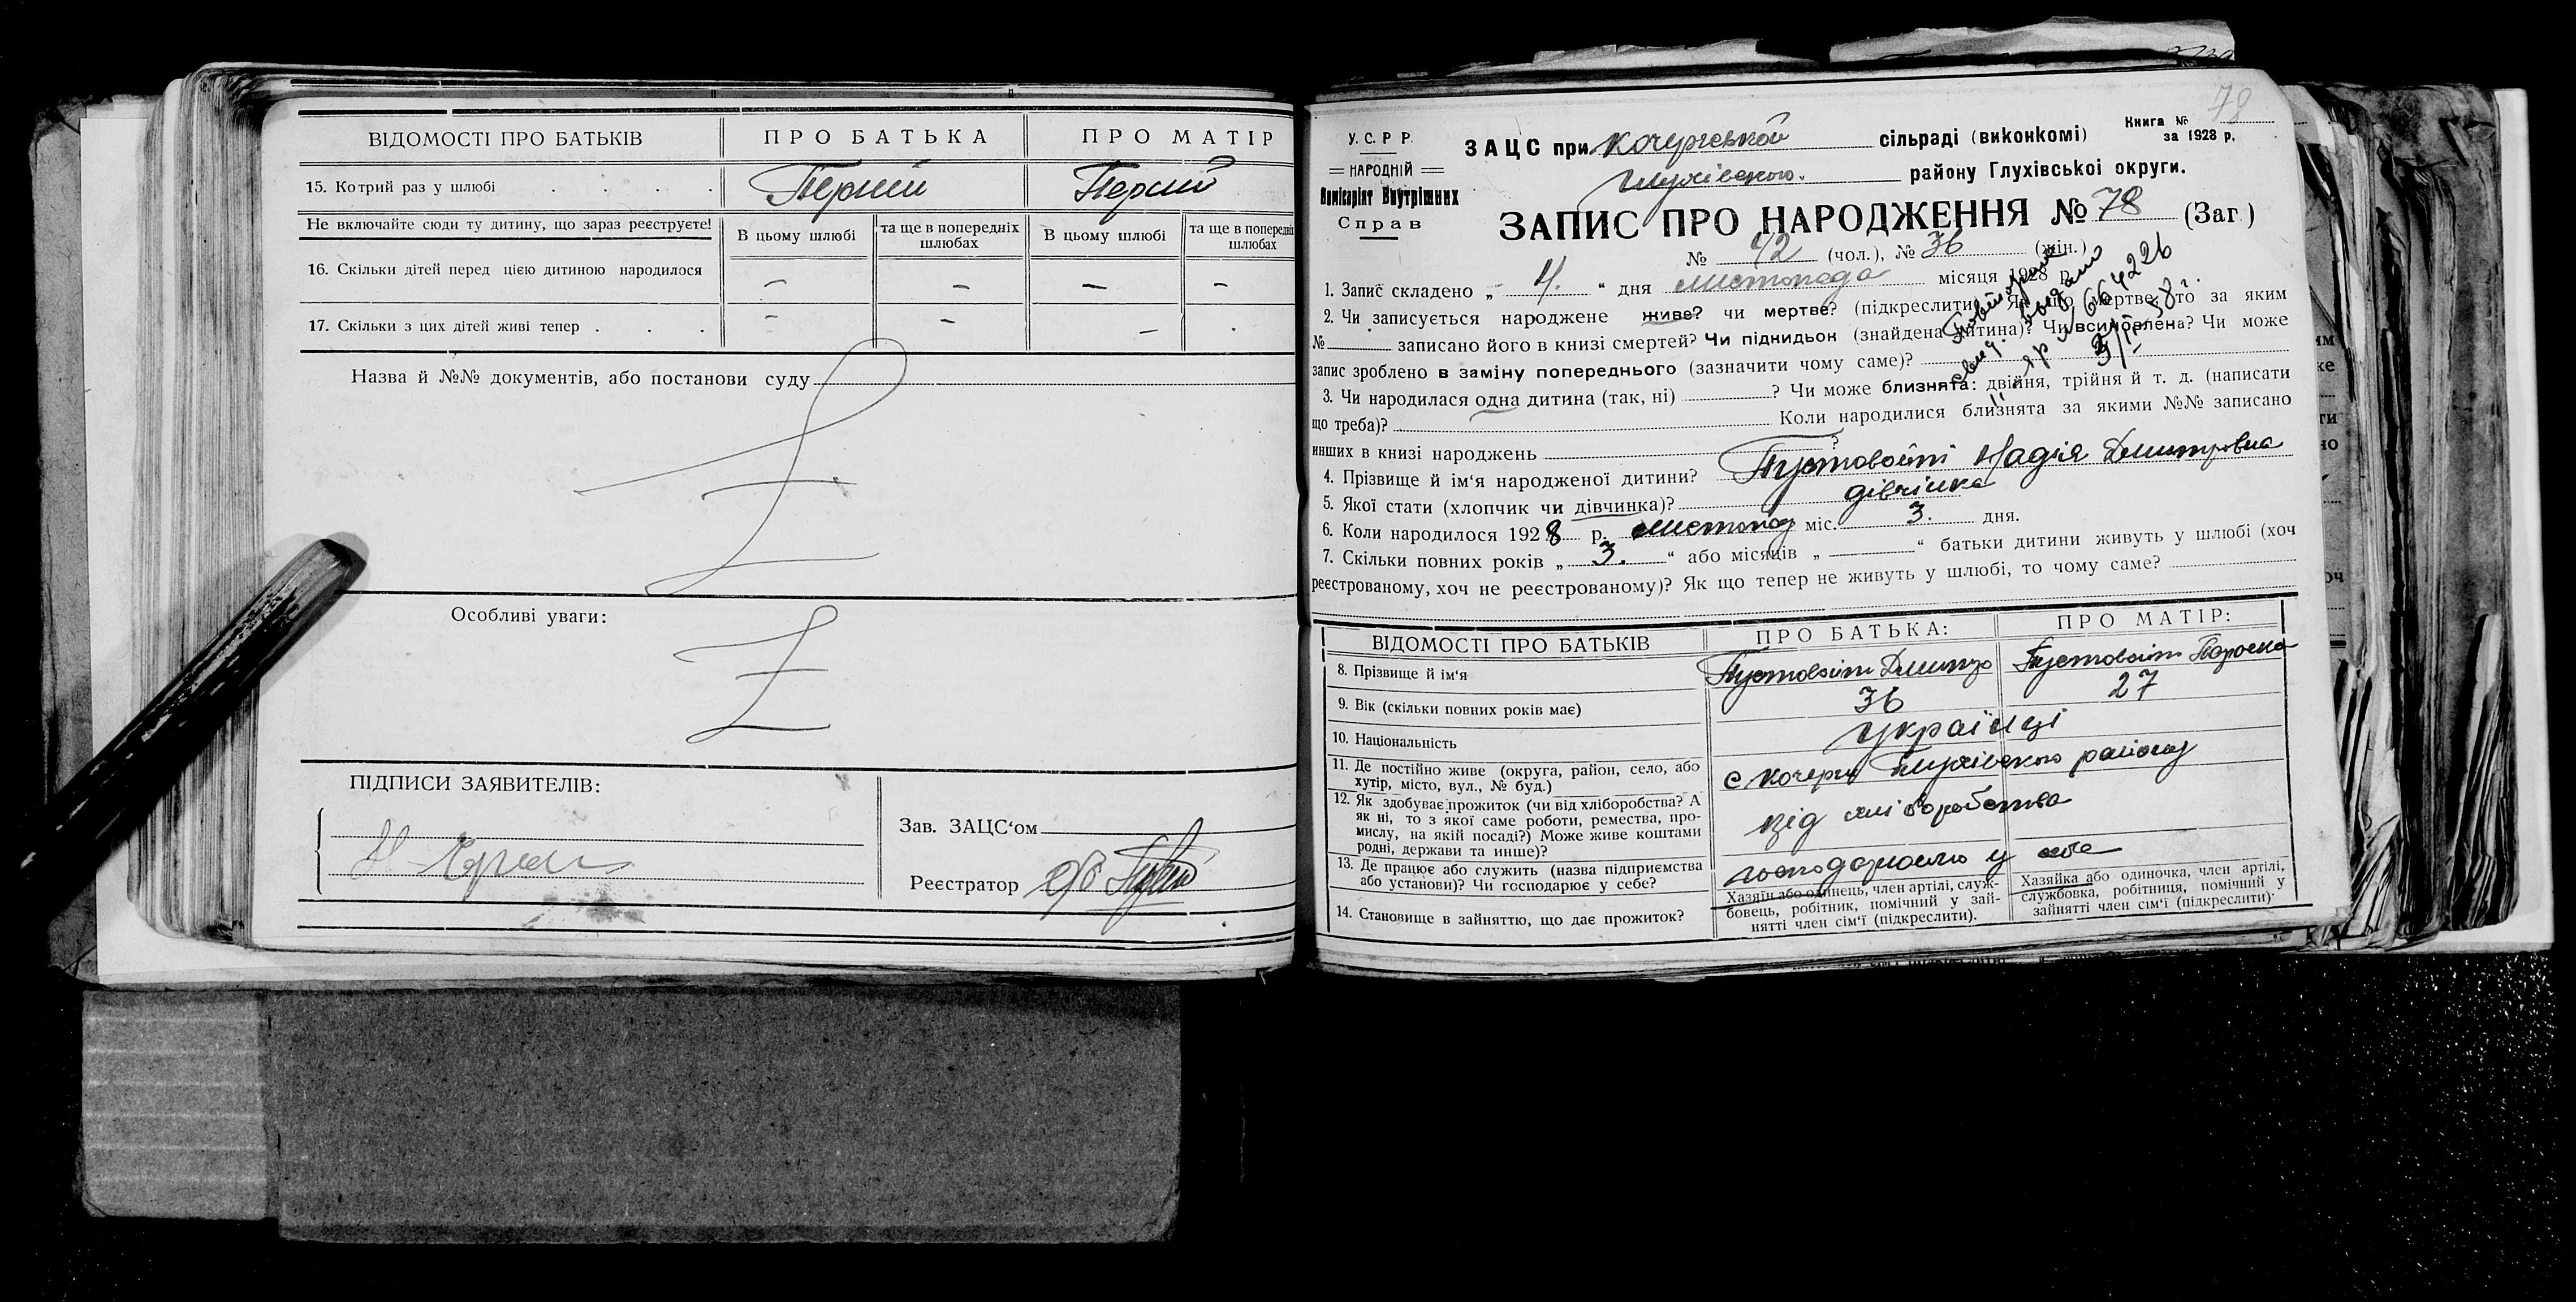 ВІДОМОСТІ ПРО БАТЬКІВ ПРО БАТЬКА ПРО МАТІР
15. Котрий раз у шлюбі . . . . Перший Перший
Не включайте сюди ту дитину, що зараз реєструєте! В цьому шлюбі та ще в попередніх шлюбах В цьому шлюбі та ще в попередніх шлюбах
16. Скільки дітей перед цією дитиною народилося — — — —
17. Скільки з цих дітей живі тепер . . . — — — .
Назва й №№ документів, або постанови суду
Z
Особливі уваги:
Z
ПІДПИСИ ЗАЯВИТЕЛІВ:
Зав. ЗАЦС‘ом
Реєстратор
78
У.С.Р.Р.
НАРОДНІЙ
Комісаріят Внутрішних
Справ
Книга №
за 1928 р.
ЗАЦС при Кочергській сільраді (виконкомі)
Глухівського району Глухівської округи.
ЗАПИС ПРО НАРОДЖЕННЯ № 78 (Заг)
№ 42 (чол.), № 36 (жін.)
1. Запис складено „ 4. “ дня листопада місяця 1928 р.
2. Чи записується народжене живе? чи мертве? (підкреслити) Як що мертве, то за яким
№ записано його в книзі смертей? Чи підкидьок (знайдена дитина)? Чи всиновлена? Чи може
запис зроблено в заміну попереднього (зазначити чому саме)?
3. Чи народилася одна дитина (так, ні) ? Чи може близнята: двійня, трійня й т. д. (написати
що треба)? Коли народилися близнята за якими №№ записано
инших в книзі народжень ?
4. Прізвище й ім‘я народженої дитини? Пустовойт Надія Дмитровна
5. Якої стати (хлопчик чи дівчинка)? дівчінка
6. Коли народилося 1928 р. листопад міс. 3. дня.
7. Скільки повних років „ 3. “ або місяців „ “ батьки дитини живуть у шлюбі (хоч
реєстрованому, хоч не реєстрованому)? Як що тепер не живуть у шлюбі, то чому саме?
ВІДОМОСТІ ПРО БАТЬКІВ ПРО БАТЬКА: ПРО МАТІР:
8. Прізвище й ім‘я Пустовойт Дмитро Пустовойт Параска
9. Вік (скільки повних років має) 36 27
10. Національність українці
11. Де постійно живе (округа, район, село, або
хутір, місто, вул., № буд.) с Кочерги Глухівського району
12. Як здобуває прожиток (чи від хліборобства? А
як ні, то з якої саме роботи, ремества, про-
мислу, на якій посаді?) Може живе коштами
родні, держави та инше)? від хліборобства
13. Де працює або служить (назва підприємства
або установи)? Чи господарює у себе? господарюють у себе
14. Становище в зайняттю, що дає прожиток?
Хазяїн або одинець, член артілі, служ-
бовець, робітник, помічний у зай-
нятті член сім‘ї (підкреслити).
Хазяйка або одиночка, член артілі,
службовка, робітниця, помічний у
зайнятті член сім‘ї (підкреслити).